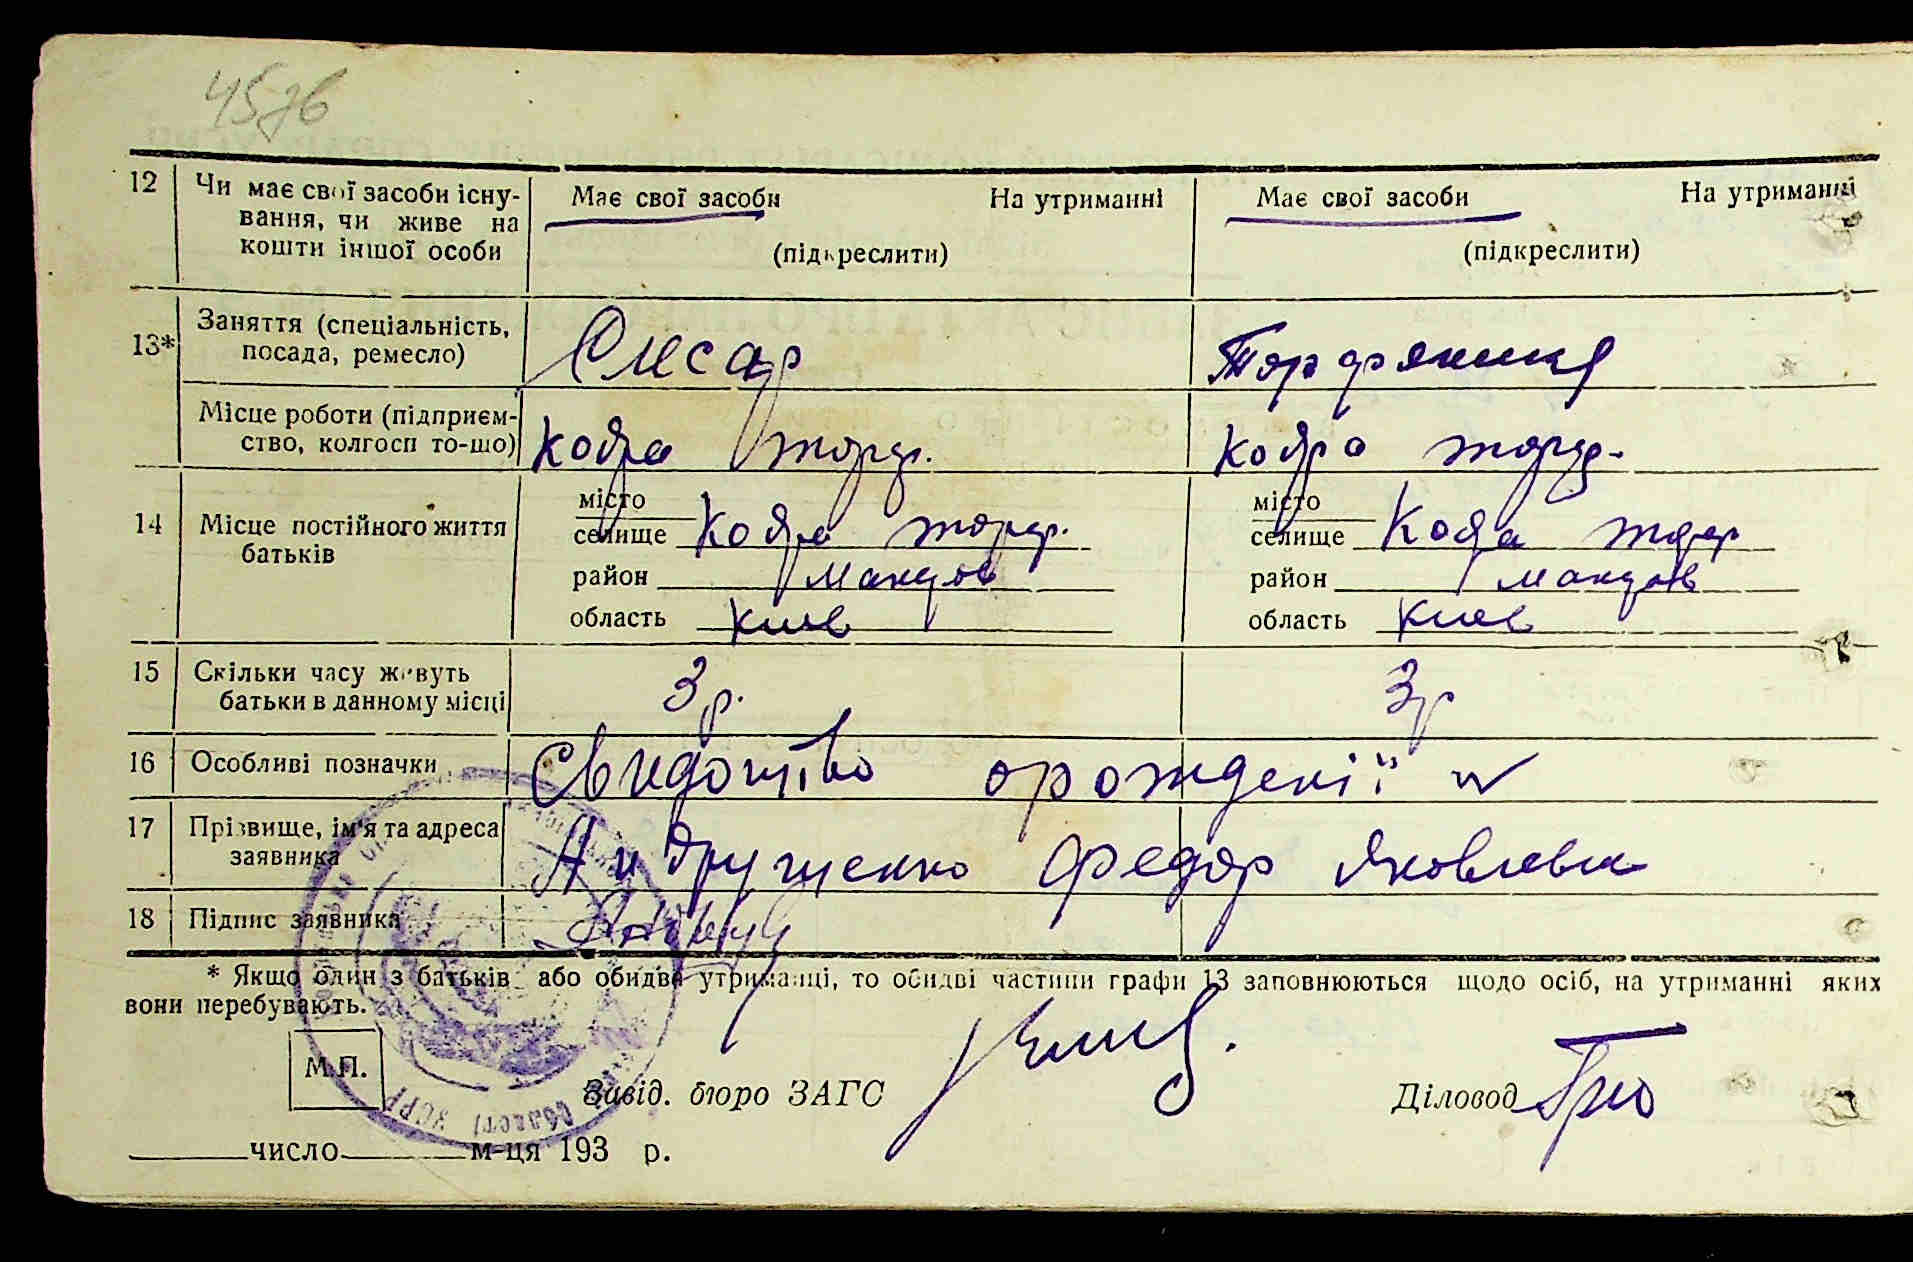 457в
12 Чи має свої засоби існування, чи живе на кошти іншої особи
Має свої засоби На утриманні
(підкреслити)
Має свої засоби На утриманні
(підкреслити)
13* Заняття (спеціальність, посада, ремесло)
Слесар
Торфяниця
Місце роботи (підприємство, колгосп то-що)
Кодра торф.
Кодра торф.
14 Місце постійного життя батьків
місто
селище Кодра торф.
район Макаров
область Киев
місто
селище Кодра торф
район Макаров
область Киев
15 Скільки часу живуть батьки в данному місці
3 р.
3 р
16 Особливі позначки
Свидоцтво о рождениї
17 Прізвище, ім'я та адреса заявника
Андрущенко Федор Яковлевич
18 Підпис заявника
* Якщо один з батьків або обидва утриманці, то обидві частини графи 13 заповнюються щодо осіб, на утриманні яких
вони перебувають.
М.П.
Завід. бюро ЗАГС
Діловод
число м-ця 193 р.